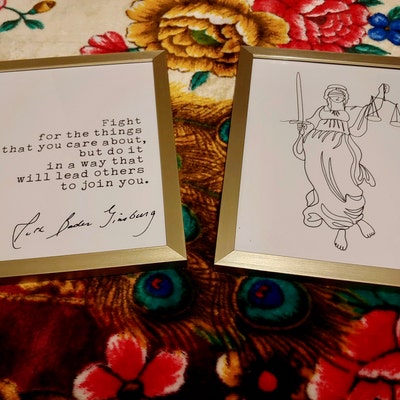 Fight
for the things
that you care about,
but do it
in a way that
will lead others
to join you.
Ruth Bader Ginsburg